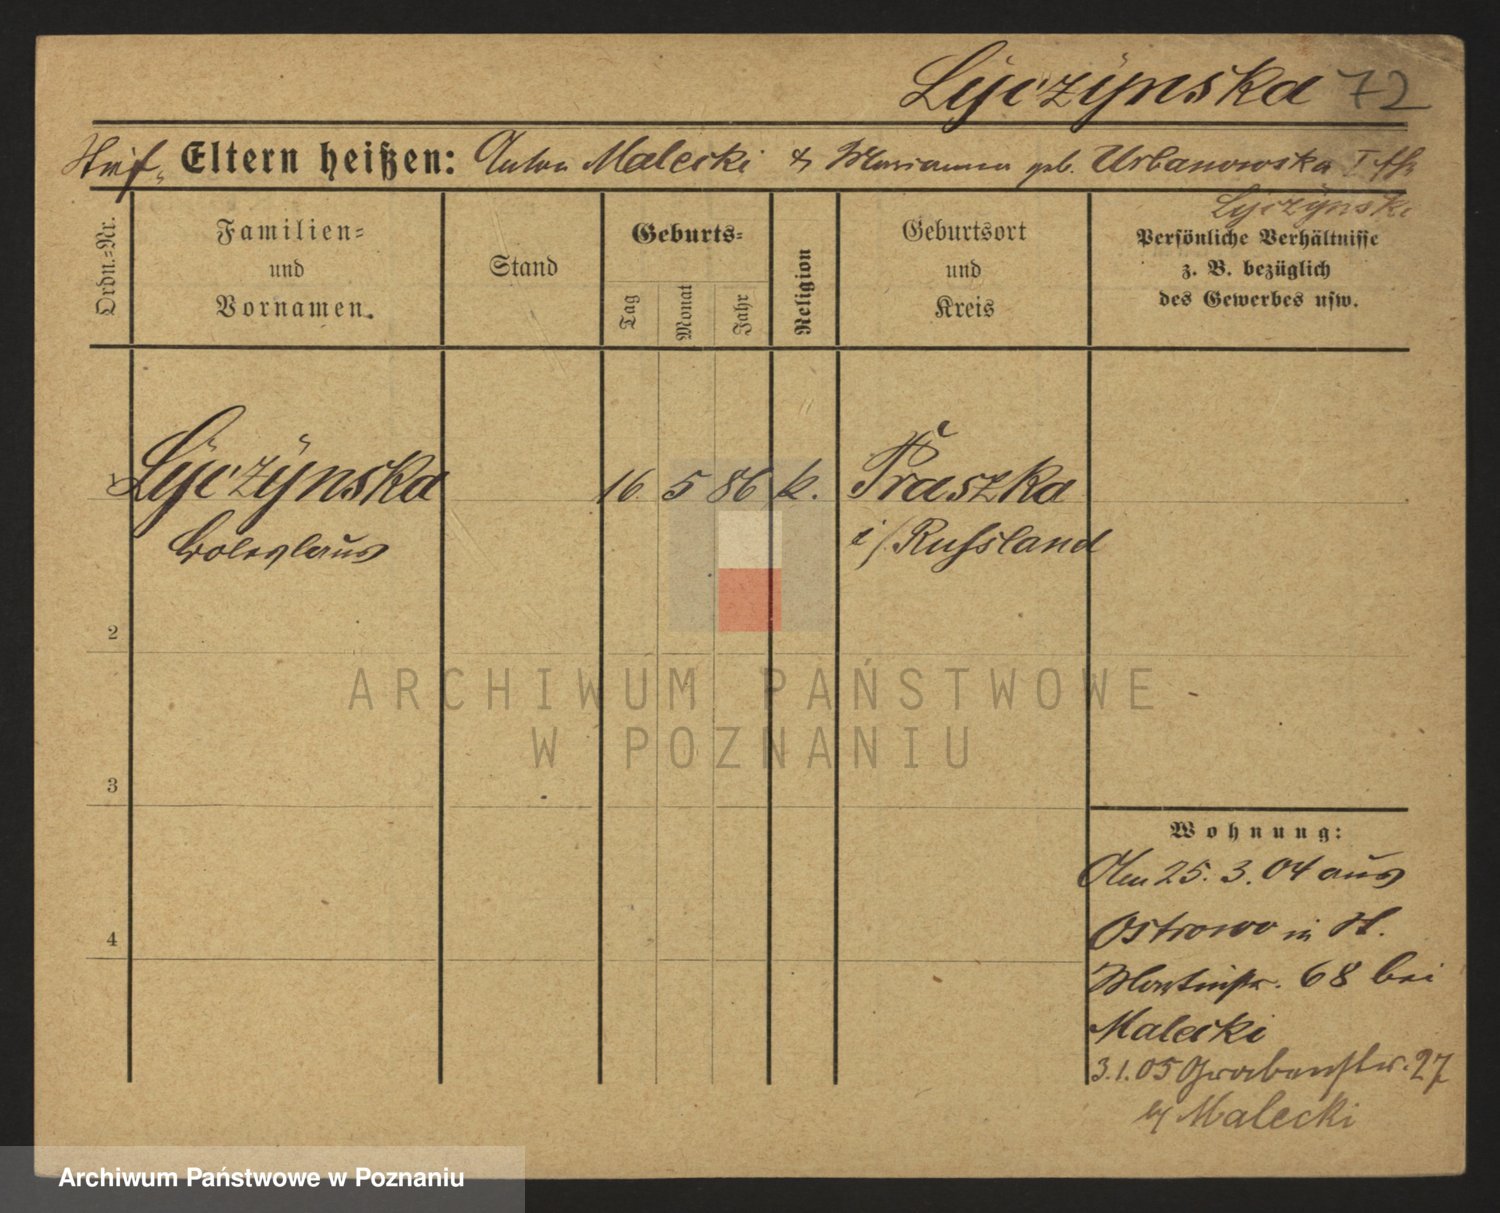 Lyczynska 72
Stief- Eltern heißen: Anton Malecki & Marianna geb. Urbanowska I Eh.
Lyczynski
Ordn.-Nr.
Familien-
und
Vornamen.
Stand
Geburts-
Tag
Monat
Jahr
Religion
Geburtsort
und
Kreis
Persönliche Verhältnisse
z. B. bezüglich
des Gewerbes usw.
1 Lyczynska 16. 5 86 k. Praszka
Boleslaus i/ Russland
2
ARCHIWUM PAŃSTWOWE
W POZNANIU
3
Wohnung:
Am 25. 3. 04 aus
4
Ostrowo in H.
Martinstr. 68 bei
Malecki
3.1.05 Grabenstr. 27
b/ Malecki
Archiwum Państwowe w Poznaniu